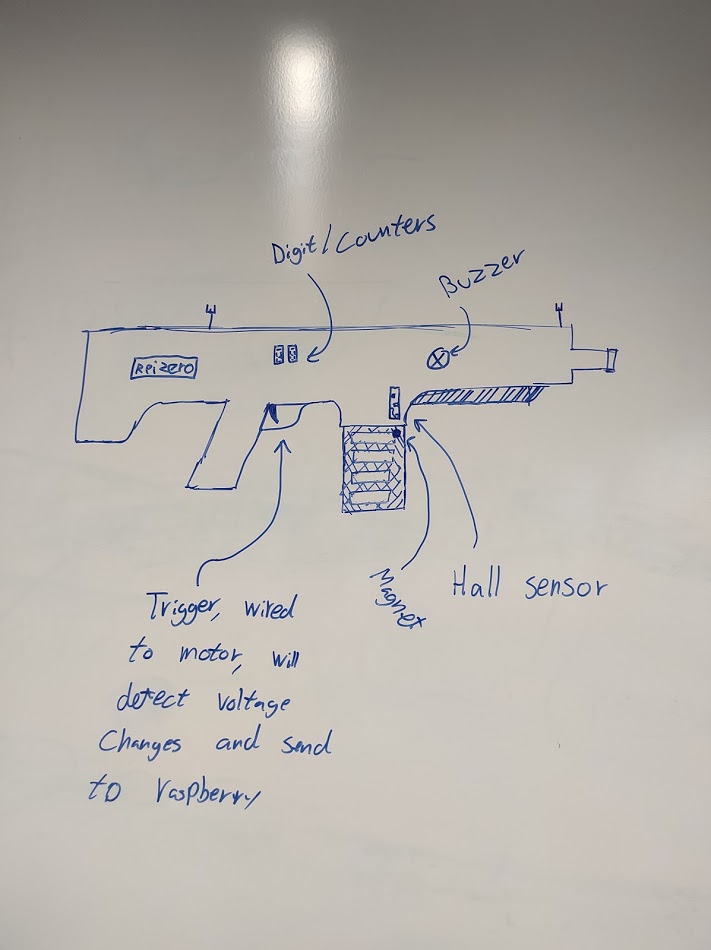 Digit/Counters
Buzzer
RPi zero
Magnet
Hall sensor
Trigger, wired
to motor, will
detect voltage
Changes and send
to raspberry